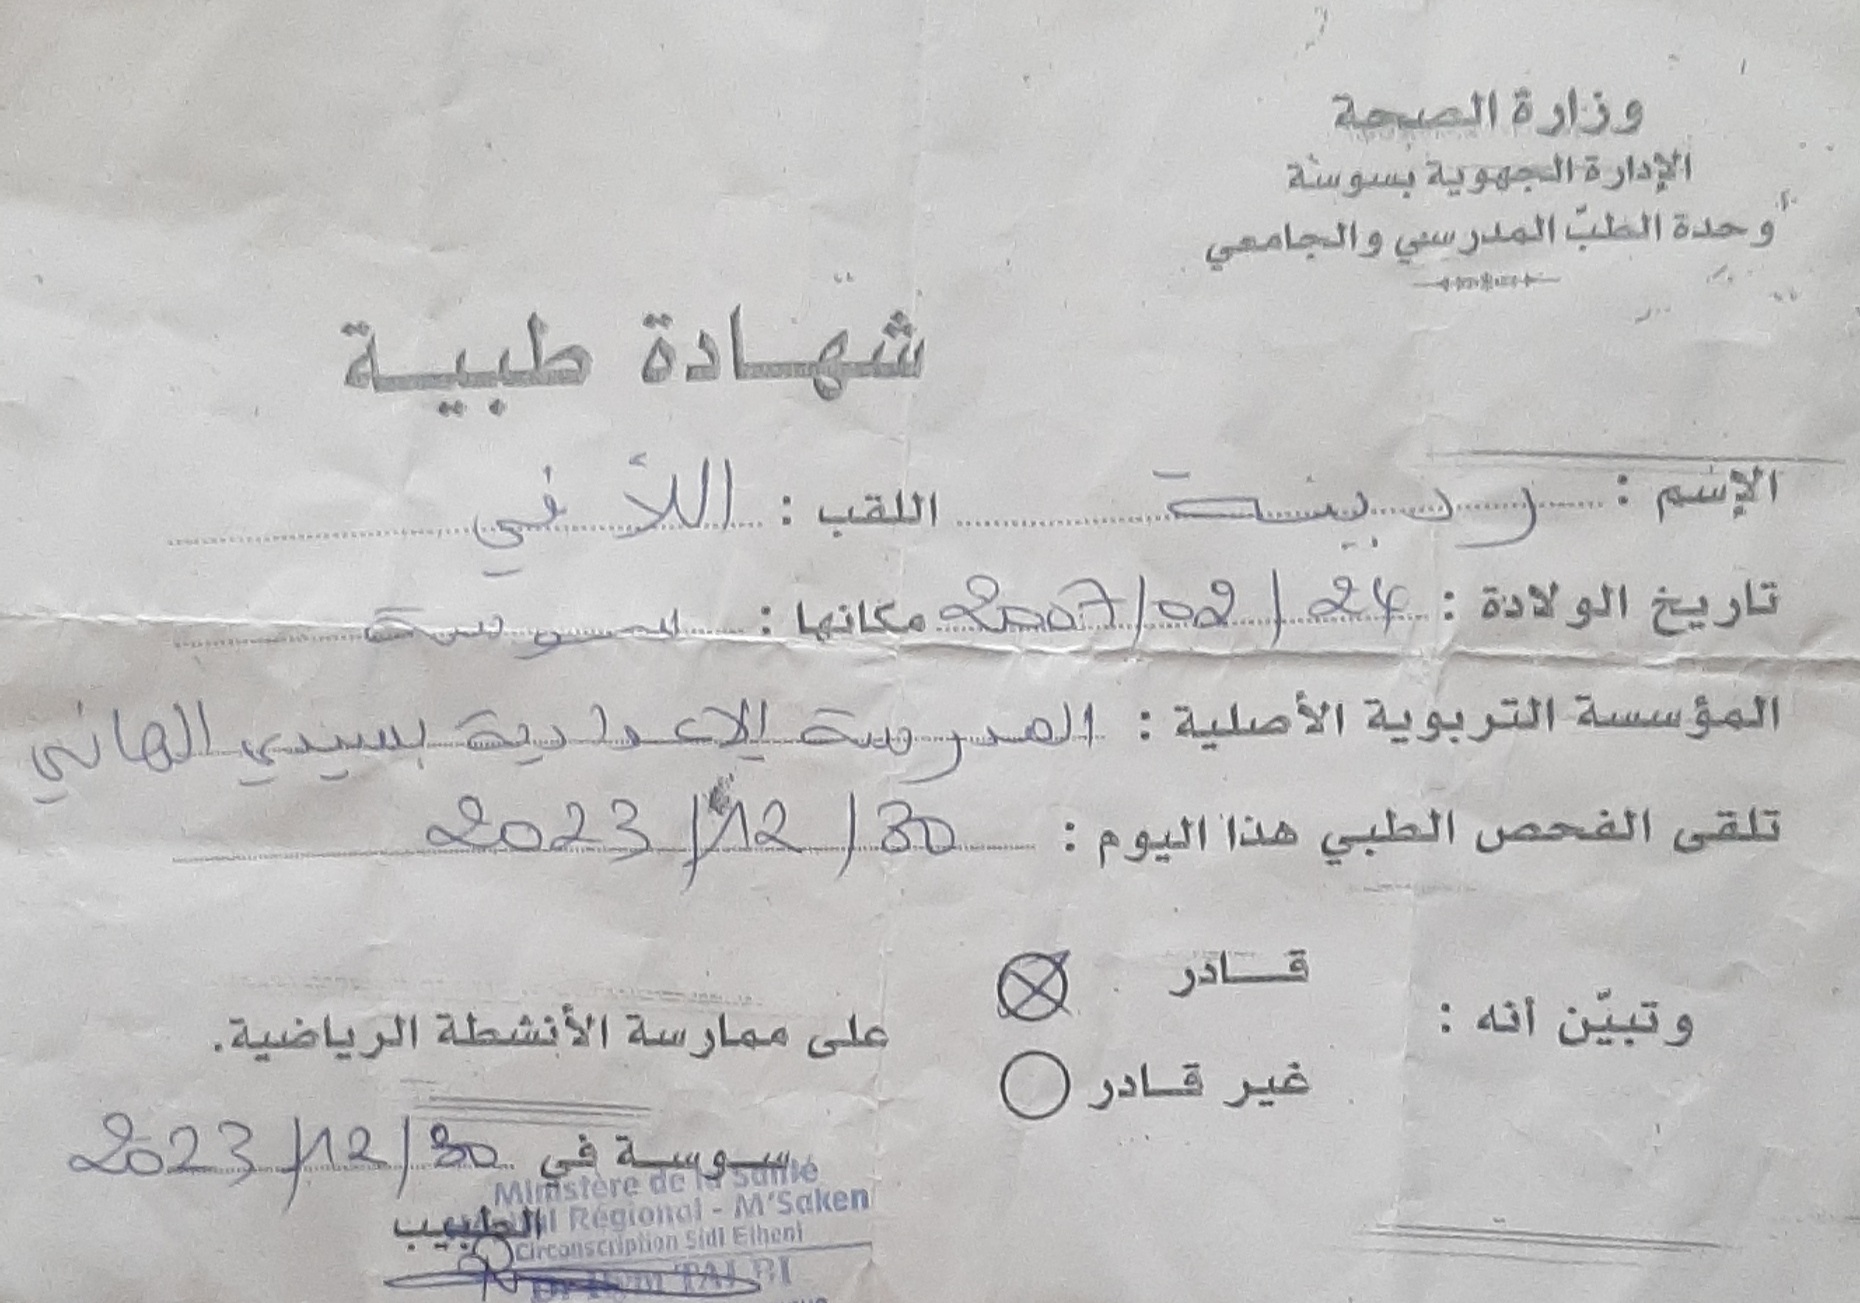 وزارة الصحة
الإدارة الجهوية بسوسة
وحدة الطبّ المدرسي والجامعي
شهادة طبية
الإسم : اللقب : اللأفي
تاريخ الولادة : 24 / 02 / 2007 مكانها : سوسة
المؤسسة التربوية الأصلية : المدرسة الإعدادية بسيدي الهاني
تلقى الفحص الطبي هذا اليوم : 30 / 12 / 2023
وتبيّن أنه :
قادر
غير قادر
على ممارسة الأنشطة الرياضية.
سوسة في 30 / 12 / 2023
Ministère de la Santé
الطبيب
Régional - M'Saken
Circonscription Sidi Elheni
TALBI